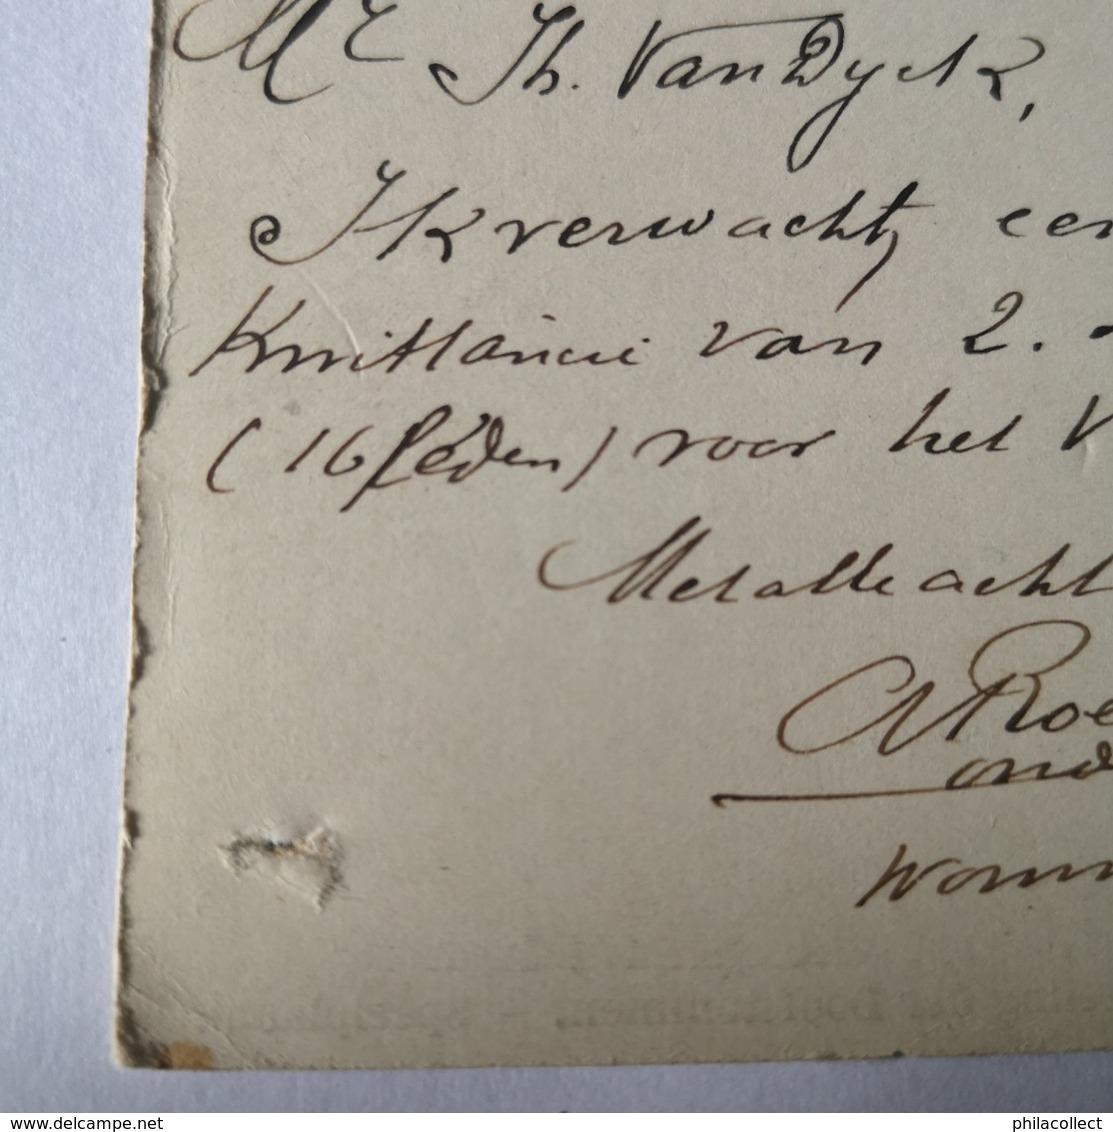 Mr Th. Van Dyck,
Ik verwacht, een
Kwittancie van 2.
(16 leden) voor het V
Met alle acht
onde
womm
www.delcampe.net
philacollect